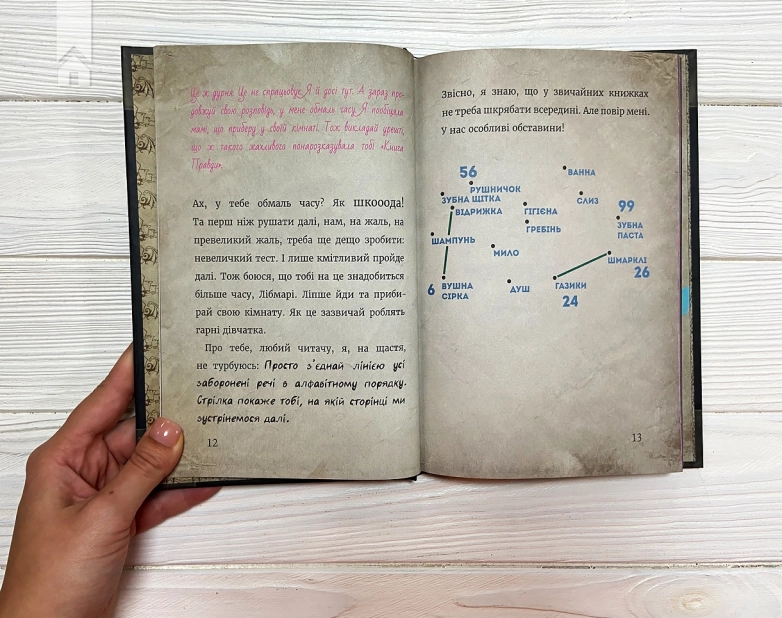 Це ж дурня. Це не спрацьовує. Я й досі тут. А зараз про-
довжуй свою розповідь, у мене обмаль часу. Я пообіцяла
мамі, що приберу у своїй кімнаті. Тож викладай урешті,
що ж такого жахливого понарозказувала тобі «Книга
Правди».
Ах, у тебе обмаль часу? Як ШКОООДА!
Та перш ніж рушати далі, нам, на жаль, на
превеликий жаль, треба ще дещо зробити:
невеличкий тест. І лише кмітливий пройде
далі. Тож боюся, що тобі на це знадобиться
більше часу, Лібмарі. Ліпше йди та приби-
рай свою кімнату. Як це зазвичай роблять
гарні дівчатка.
Про тебе, любий читачу, я, на щастя,
не турбуюсь: Просто з'єднай лінією усі
заборонені речі в алфавітному порядку.
Стрілка покаже тобі, на якій сторінці ми
зустрінемося далі.
12
Звісно, я знаю, що у звичайних книжках
не треба шкрябати всередині. Але повір мені.
У нас особливі обставини!
56
ВАННА
РУШНИЧОК
ЗУБНА ЩІТКА
СЛИЗ
99
ВІДРИЖКА
ГІГІЄНА
ЗУБНА
ПАСТА
ГРЕБІНЬ
ШАМПУНЬ
МИЛО
ШМАРКЛІ
26
6
ВУШНА
СІРКА
ДУШ
ГАЗИКИ
24
13